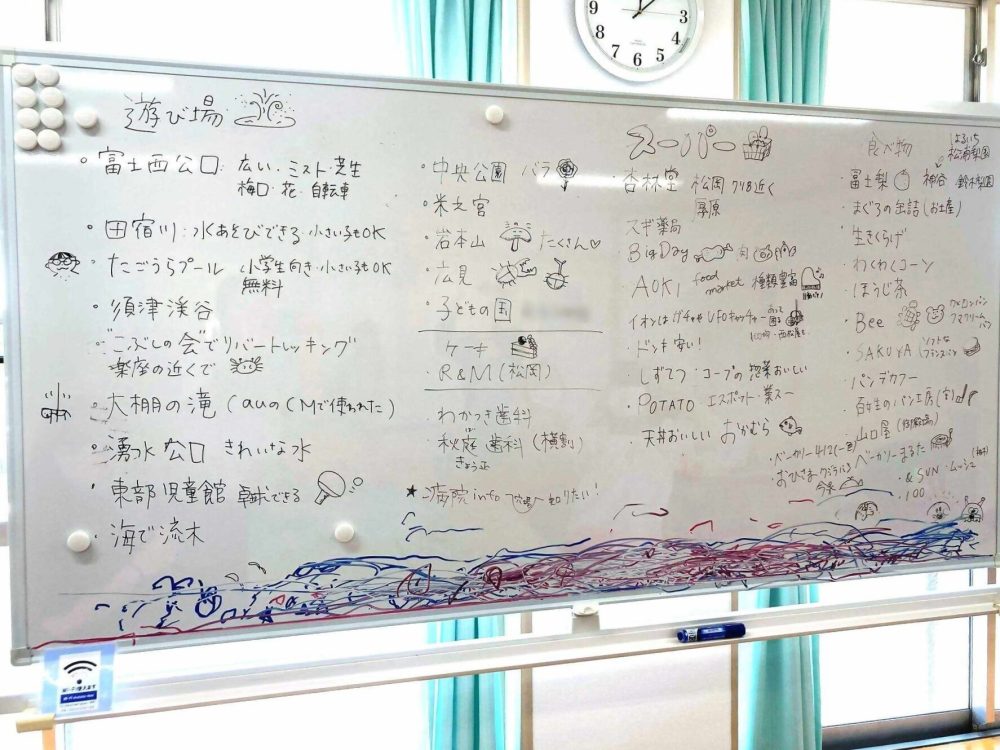 遊び場
・富士西公口: 広い・ミスト・芝生
梅口・花・自転車
・田宿川: 水あそびできる 小さい子もOK
・たごうらプール 小学生向き・小さい子もOK
無料
・須津渓谷
・こぶしの会でリバートレッキング
楽座の近くで
・大棚の滝 (auのCMで使われた)
・湧水公口 きれいな水
・東部児童館 卓球できる
・海で流木
・中央公園 バラ
・米之宮
・岩本山 たくさん♡
・広見
・子どもの国
ケーキ
・R&M (松岡)
わかつき歯科
・秋庭歯科 (横割)
きょう正
★病院info 知りたい!
スーパー
・杏林堂 松岡 クリB近く
厚原
スギ薬局
BigDay 肉
・AOKI food market 種類豊富
イオンはガチャもUFOキャッチャー
・ドンキ 安い!
・しずてつ・コープの惣菜おいしい
・POTATO・エスポット・業スー
・天丼おいしい おかむら
食べ物
はるいち
松浦梨園
・富士梨 神谷 鈴木梨園
・まぐろの缶詰 (お土産)
・生きくらげ
・わくわくコーン
・ほうじ茶
・Bee メロンパン
クマクリームパン
・SAKUYA ソフトな
フランスパン
・パンデカフー
・百姓のパン工房
・山口屋
・ベーカリー412
・ベーカリーまるた
・おひさま・クジラパン
今泉
・&SUN・ムッシュ
・100
12
1
2
3
4
5
6
7
8
9